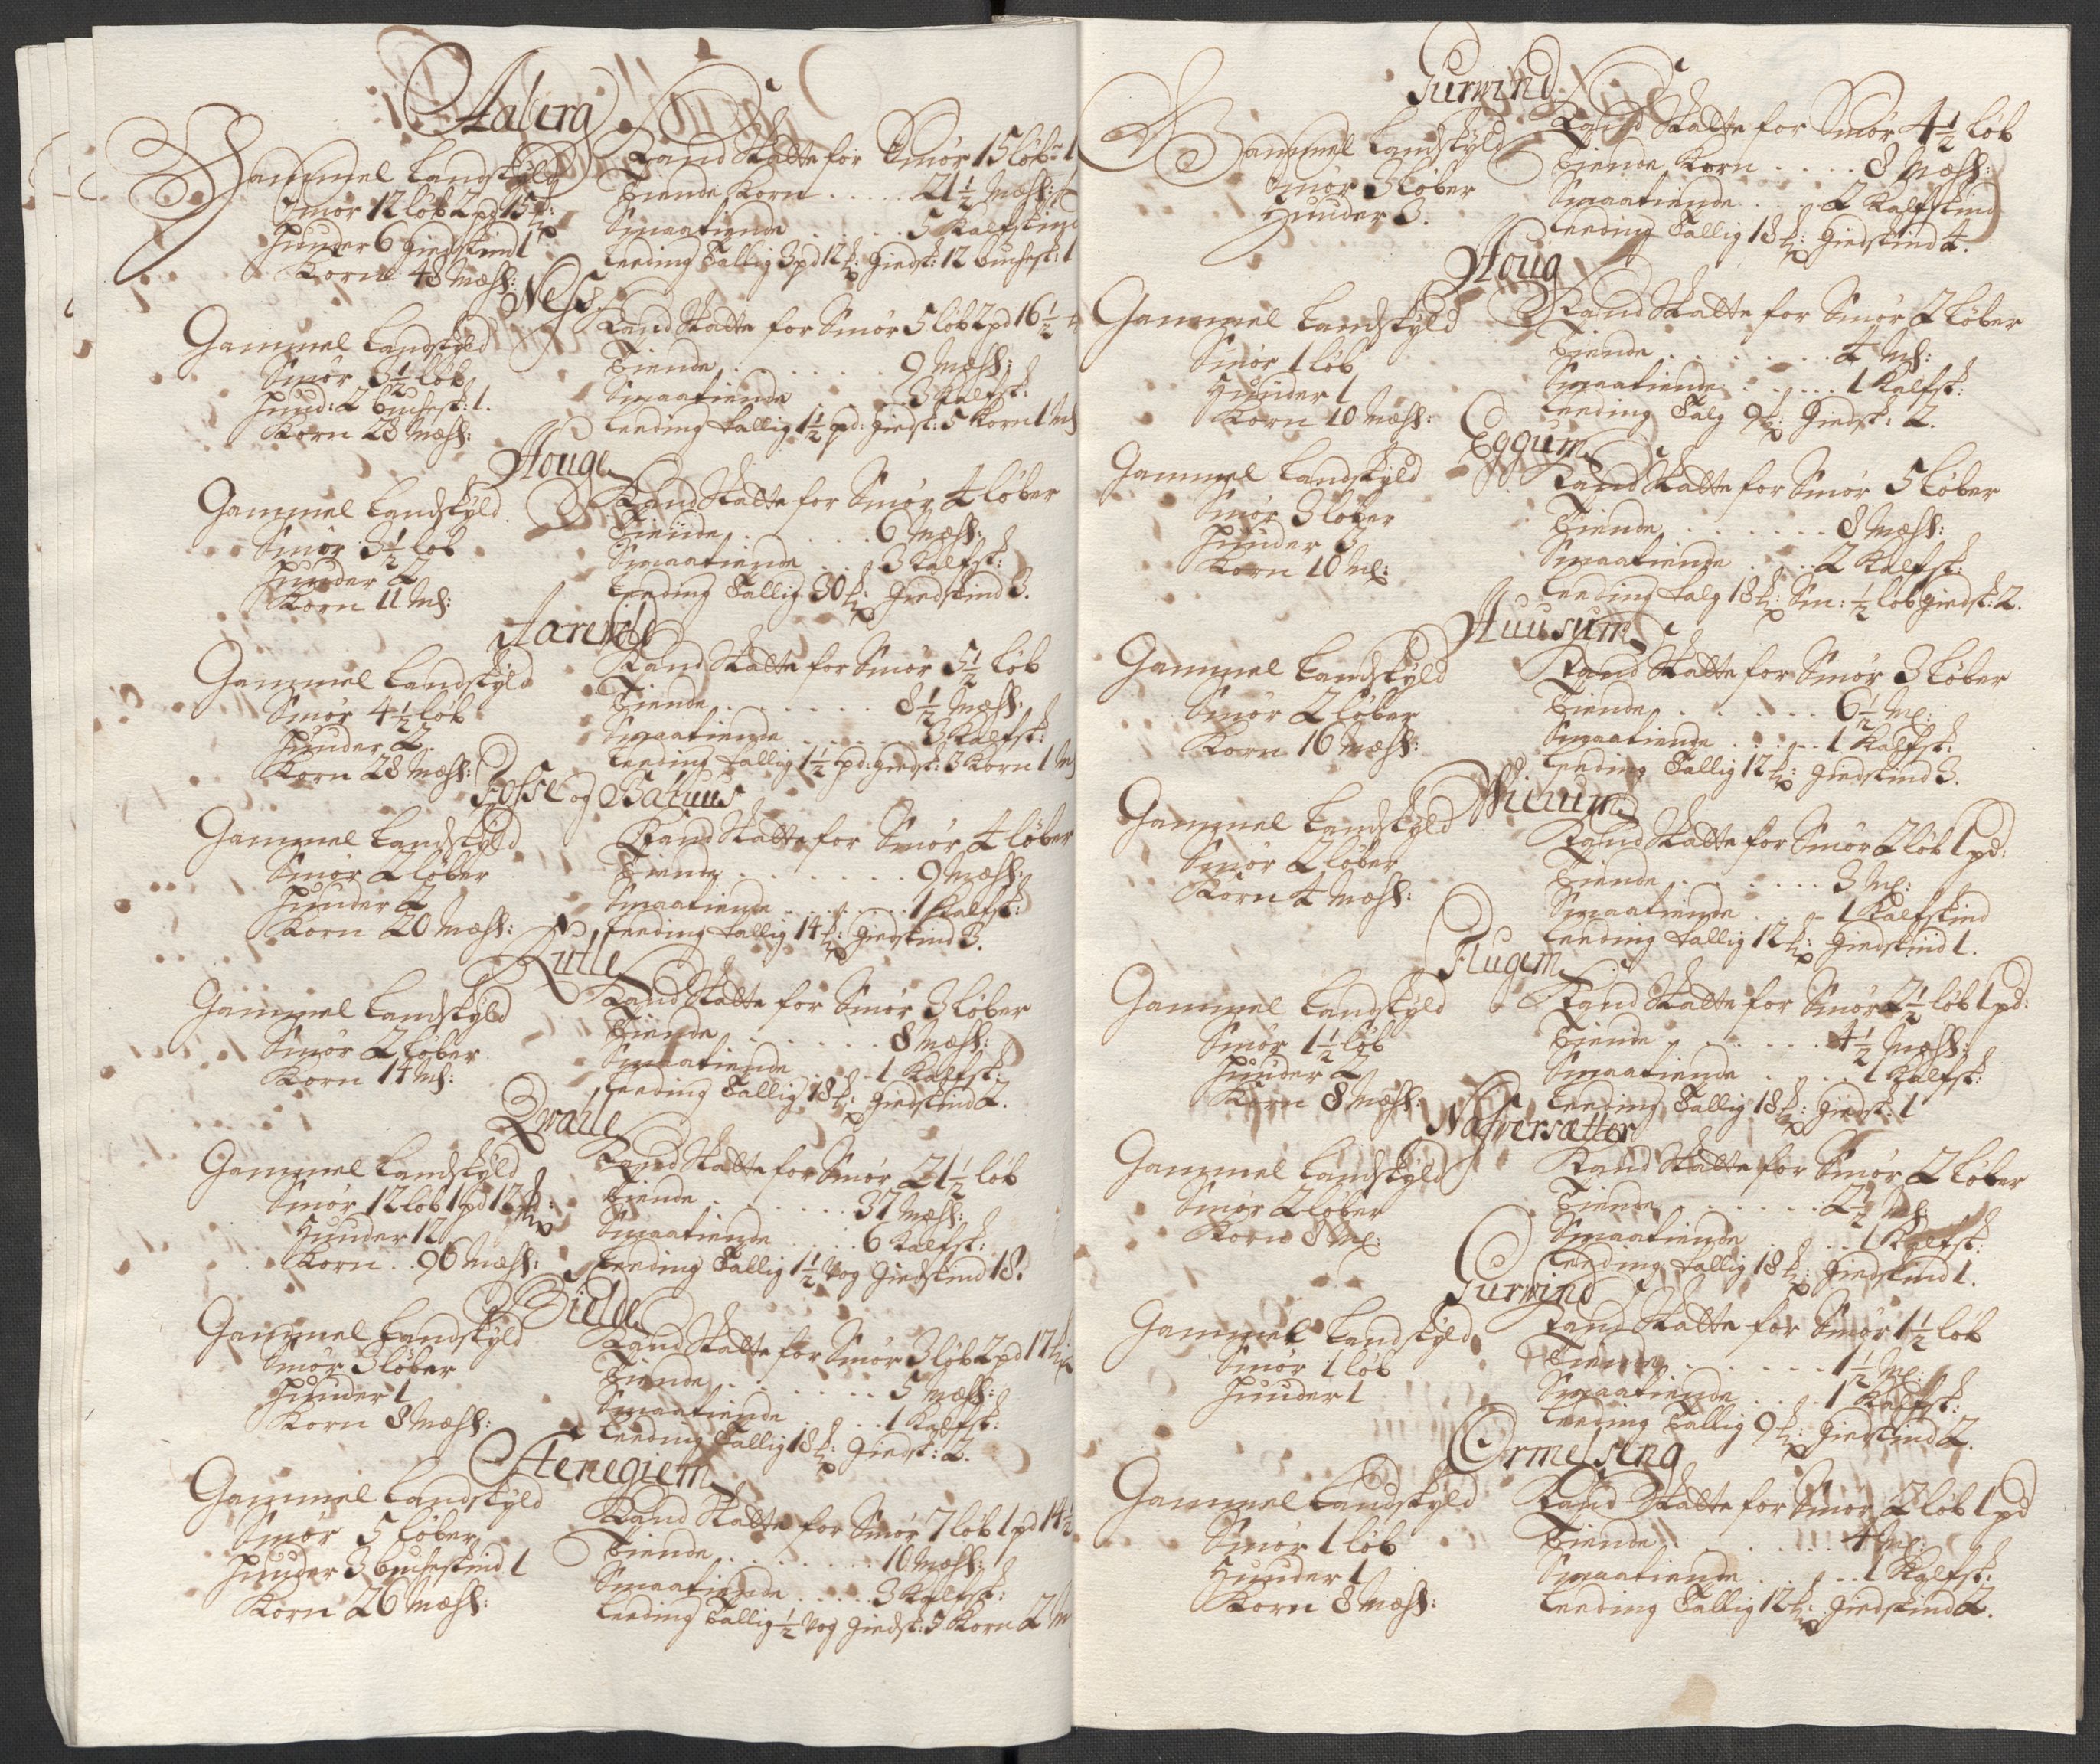 Aaberg
Gammel Landskyld
Smør 12 løb 2 pd 15
Huuder 6 Giedskind 1
Korn 48 Mæhl:
Rand Skatte for Smør 15 løb
Tiende Korn . . . . . 21½ Mæhl:
Smaatiende . . . . 5 Kalfskind
Leeding Tallig 3 pd 12 Giedsk: 12 buchesk: 1
Ness
Gammel Landskyld
Smør 3½ løb
Huud: 2 buchesk: 1.
Korn 28 Mæhl:
Rand Skatte for Smør 5 løb 2 pd 16½
Tiende . . . . . . 9 Mæhl:
Smaatiende . . . . 3 Kalfsk:
Leeding Tallig 1½ pd: Giedsk: 5 Korn 1
Houge
Gammel Landskyld
Smør 3½ løb
Huuder 2
Korn 11 Ml:
Rand Skatte for Smør 4 løber
Tiende . . . . . 6 Mæhl:
Smaatiende . . . 3 Kalfsk:
Leeding Tallig 30 Giedskind 3.
Gammel Landskyld
Smør 4½ løb
Huuder 2.
Korn 28 Mæhl:
Rand Skatte for Smør 5½ løb
Tiende . . . . . . 8½ Mæhl:
Smaatiende . . . . . 3 Kalfsk:
Leeding Tallig 1½ pd: Giedsk: 3 Korn 1
Fosse og
Gammel Landskyld
Smør 2 løber
Huuder 2
Korn 20 Mæhl:
Rand Skatte for Smør 4 løber
Tiende . . . . . . 9 Mæhl:
Smaatiende . . . . . 1 Kalfsk:
Leeding Tallig 14 Giedskind 3.
Rutle
Gammel Landskyld
Smør 2 løber
Korn 14 Ml:
Rand Skatte for Smør 3 løber
Tiende . . . . . . 8 Mæhl:
Smaatiende . . . 1 Kalfsk:
Leeding Tallig 18 Giedskind 2.
Qvalle
Gammel Landskyld
Smør 12 løb 1 pd 12
Huuder 12
Korn . . 96 Mæhl:
Rand Skatte for Smør 21½ løb
Tiende . . . . . . 37 Mæhl:
Smaatiende . . . . 6 Kalfsk:
Leeding Tallig 1½ Vog Giedskind 18.
Bielde
Gammel Landskyld
Smør 3 løber
Huuder 1
Korn 8 Mæhl:
Rand Skatte for Smør 3 løb 2 pd 17
Tiende . . . . . . 5 Mæhl:
Smaatiende . . . . 1 Kalfsk:
Leeding Tallig 18 Giedsk: 2.
Stenegiem
Gammel Landskyld
Smør 5 løber
Huuder 3 bucheskind 1
Korn 26 Mæhl:
Rand Skatte for Smør 7 løb 1 pd 14½
Tiende . . . . . . 10 Mæhl:
Smaatiende . . . . . 3 Kalfsk:
Leeding Tallig ½ Vog Giedsk: 5 Korn 2
Turwind
Gammel Landskyld
Smør 3 løber
Huuder 3.
Rand Skatte for Smør 4½ løb
Tiende Korn . . . . 8 Mæhl:
Smaatiende . . . 2 Kalfskind
Leeding Tallig 18 Giedskind 4.
Houg
Gammel Landskyld
Smør 1 løb
Huuder 1
Korn 10 Mæhl:
Rand Skatte for Smør 2 løber
Tiende . . . . . . 4 Ml:
Smaatiende . . . . . 1 Kalfsk:
Leeding Talg 9 Giedsk: 2.
Eggum
Gammel Landskyld
Smør 3 løber
Huuder 3
Korn 10 Ml:
Rand Skatte for Smør 5 løber
Tiende . . . . . . 8 Mæhl:
Smaatiende . . . 2 Kalfsk:
Leeding Talg 18 Sm: ½ løb Giedsk: 2.
Huusum
Gammel Landskyld
Smør 2 løber
Korn 16 Mæhl:
Rand Skatte for Smør 3 løber
Tiende . . . . . . 6½ Ml:
Smaatiende . . . . 1 Kalfsk:
Leeding Tallig 12 Giedskind 3.
Gammel Landskyld
Smør 2 løber
Korn 4 Mæhl:
Rand Skatte for Smør 2 løb 1 pd:
Tiende . . . . . . 3 Ml:
Smaatiende . . . 1 Kalfskind
Leeding Tallig 12 Giedskind 1.
Flugem
Gammel Landskyld
Smør 1½ løb
Huuder 2
Korn 8 Mæhl:
Rand Skatte for Smør 2½ løb 1 pd:
Tiende . . . . . . 4½ Mæhl:
Smaatiende . . . . 1 Kalfsk:
Leeding Tallig 18 Giedsk: 1
Gammel Landskyld
Smør 2 løber
Korn 8 Ml:
Rand Skatte for Smør 2 løber
Tiende . . . . . . 2½ Ml:
Smaatiende . . . . 1 Kalfsk:
Leeding Tallig 18 Giedskind 1.
Turwind
Gammel Landskyld
Smør 1 løb
Huuder 1
Rand Skatte for Smør 1½ løb
Tiende . . . . . . 1½ Ml:
Smaatiende . . . . 1 Kalfsk:
Leeding Tallig 9 Giedskind 2.
Ormelseng
Gammel Landskyld
Smør 1 løb
Huuder 1
Korn 8 Mæhl:
Rand Skatte for Smør 2 løb 1 pd
Tiende . . . . . . 4 Ml:
Smaatiende . . . . 1 Kalfsk:
Leeding Tallig 12 Giedskind 2.